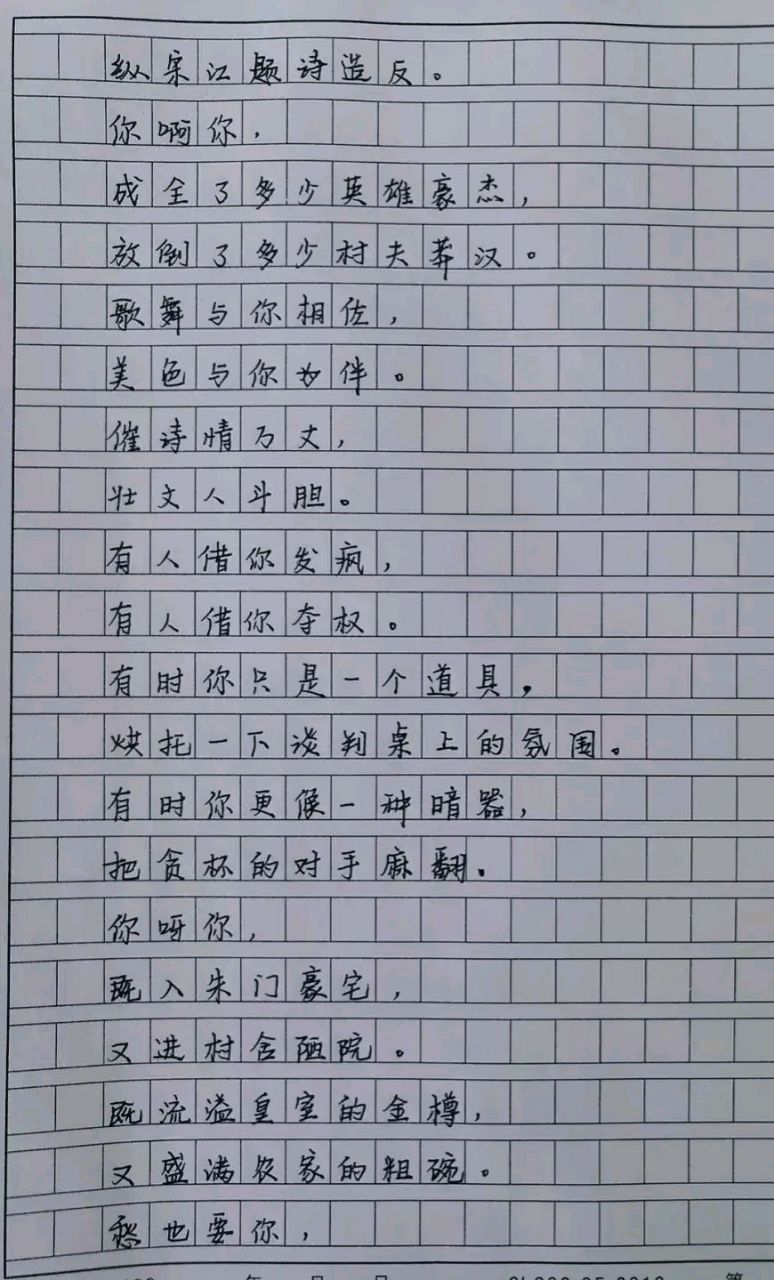 纵宋江题诗造反。
你啊你，
成全了多少英雄豪杰，
放倒了多少村夫莽汉。
歌舞与你相佐，
美色与你为伴。
催诗情万丈，
壮文人斗胆。
有人借你发疯，
有人借你夺权。
有时你只是一个道具，
烘托一下谈判桌上的氛围。
有时你更像一种暗器，
把贪杯的对手麻翻。
你呀你，
既入朱门豪宅，
又进村舍陋院。
既流溢皇室的金樽，
又盛满农家的粗碗。
愁也要你，
年 月 日 第